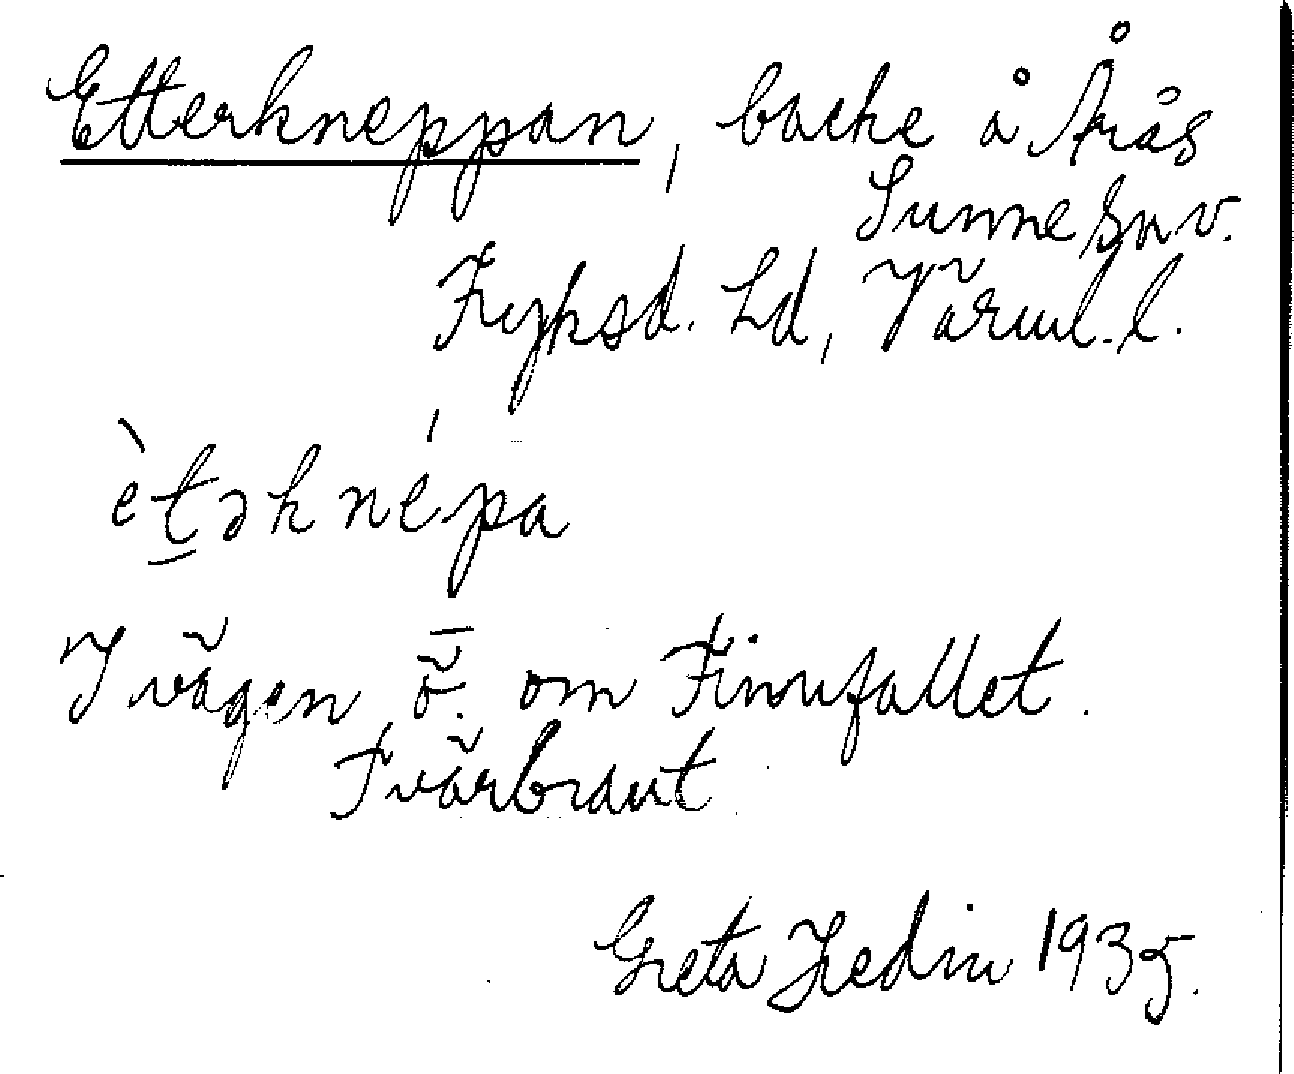 Etterkneppan, backe å Årås
Sunne sn v.
Fryksd. hd, Värml. l.
èt̠əknépa
I vägen ö. om Finnfallet.
Tvärbrant
Greta Hedin 1935.